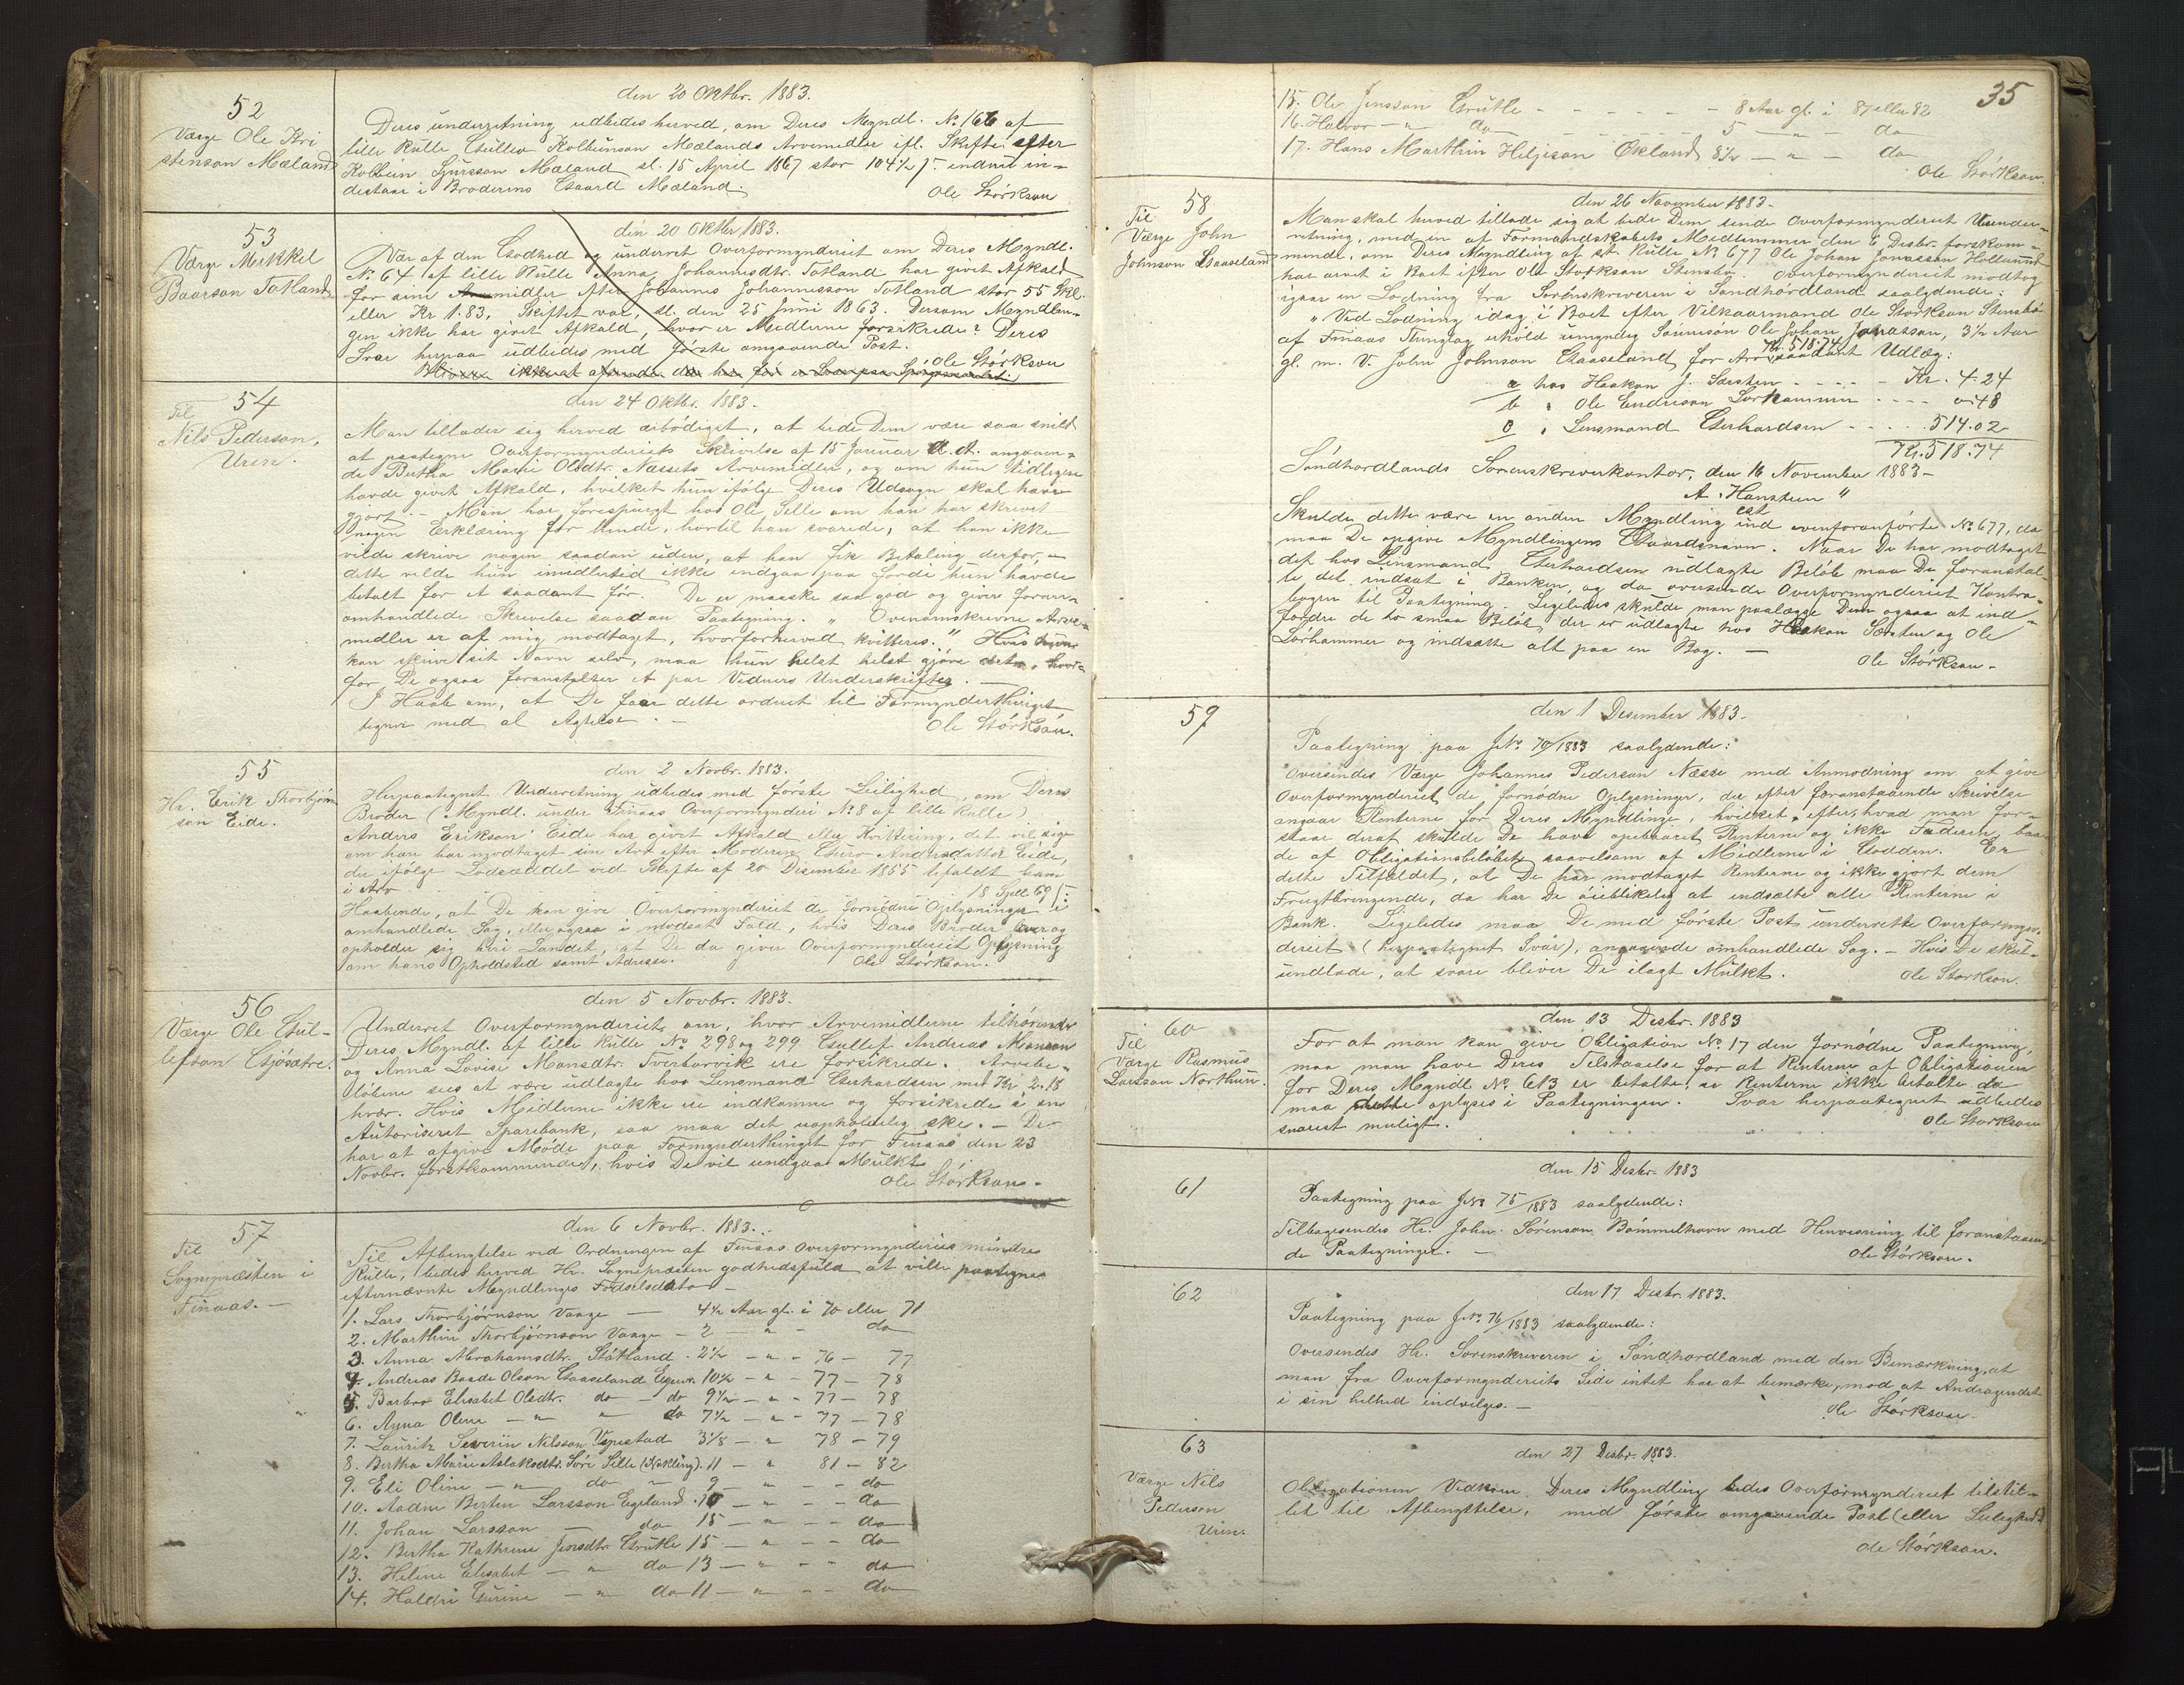 52
Værge Ole Kri
stenson Mæland
den 20 Oktbr. 1883.
Deres underretning udbedes herved, om Deres Myndl. No. 166 af
lille Rulle Gullew Kolbeinson Mælands Arvemidler ifl. Skifte efter
Kolbein Sjursson Mæland sl. 15 April 1867 stor 104½ ſ. endnu in-
destaar i Broderens Gaard Mæland.
Ole Størkson
53
Værge Mikkel
Baarson Totland
den 20 Oktbr 1883.
Vær af den Godhed og underret Overformynderiet om Deres Myndl.
No. 64 af lille Rulle Anna Johannesdtr. Totland har givet Afkald
for sine midler efter Johannes Johannesson Totland stor 55 Skl.
eller Kr 1.83. Skiftet var, sl. den 25 Juni 1863. Dersom Myndlin-
gen ikke har givet Afkald, hvor er Midlerne forsikrede? Deres
Svar herpaa udbedes med første omgaaende Post.
Ole Størkson
54
Til
Nils Pederson,
Uren.
den 24 Oktbr. 1883.
Man tillader sig herved ærbødigst, at bede Dem være saa snild
at paategne Overformynderiets Skrivelse af 15 Januar d. A. angaaen-
de Bertha Marie Olsdtr. Næssets Arvemidler, og om hun tidligere
havde givet Afkald, hvilket hun ifølge Deres Udsagn skal have
gjort. – Man har forespurgt hos Ole Selle om han har skrevet
nogen Erklæring for hende, hertil han svarede, at han ikke
vilde skrive nogen saadan uden, at han fik Betaling derfor, –
dette vilde hun imidlertid ikke indgaa paa fordi hun havde
betalt for et saadant før. De er maaske saa god og giver foran-
omhandlede Skrivelse saadan Paategning. " Ovenomskrevne Arve-
midler er af mig modtaget, hvorfor herved kvitteres." Hvis hun
kan skrive sit Navn selv, maa hun helst helst gjøre det, hvor-
for De ogsaa foranstalter et par Vidners Underskrifter. —
I Haab om, at De faar dette ordnet til Formynderthinget
tegner med al Agtelse. –
Ole Størkson.
55
Hr. Erik Thorbjørn
son Eide.
den 2 Novbr. 1883.
Herpaategnet Underretning udbedes med første Leilighed, om Deres
Broder (Myndl. under Finaas Overformynderi No. 8 af lille Rulle)
Anders Erikson Eide har givet Afkald eller Kvittering, det vil sige
om han har modtaget sin Arv efter Moderen Guro Andersdatter Eide,
der ifølge Lodseddel ved Skifte af 20 Desember 1855 tilfaldt ham
i Arv 18 Spdl. 69 ſ.
Haabende, at De kan give Overformynderiet de fornødne Oplysninger i
omhandlede Sag, eller ogsaa i modsat Fald, hvis Deres Broder lever og
opholder sig her i Landet, at De da giver Overformynderiet Oplysning
om hans Opholdsted samt Adresse.
Ole Størkson.
56
Værge Ole Gul-
lefson Gjøsætre.
den 5 Novbr. 1883.
Underret Overformynderiet om, hvor Arvemidlerne tilhørende
Deres Myndl. af lille Rulle No 298 og 299 Gullef Andreas Monson
og Anna Lovise Monsdtr. Tverborvik ere forsikrede. Arvebe-
løbene sees at være udlagte hos Lensmand Gerhardsen med Kr 2.15
hver. Hvis Midlerne ikke ere indkomne og forsikrede i en
Autoriseret Sparebank, saa maa det uopholdelig ske. – De
har at afgive Møde paa Formynderthinget for Finaas den 23
Novbr. førstkommende, hvis De vil undgaa Mulkt.
Ole Størkson.
57
Til
Sognepræsten i
Finaas. –
den 6 Novbr. 1883.
Til Afbenyttelse ved Ordningen af Finaas Overformynderies mindre
Rulle, bedes herved Hr. Sognepræsten godhedsfuld at ville paategne
efternævnte Myndlinges Fødselsdato –
1. Lars Thorbjørnson Vaage — 4½ Aar gl. i 70 eller 71
2. Marthin Thorbjørnson Vaage – 2 – " – do
3. Anna Abrahamsdtr. Støkland. 2½ – " – 76 – 77
4. Andreas Baade Olson Gaaseland 10½ – " – 77 – 78
5. Barbro Elisabet Olsdtr. do – do 9½ – " – 77 – 78
6. Anna Oline – " " do 7½ – " – 77 – 78
7. Lauritz Severin Nilsson Vespestad 3⅛ – " 78 – 79
8. Bertha Marie Aslaksdtr. Søre Selle (Kokling). 11 – " 81 – 82
9. Eli Oline – " do " 9 – " – do
10. Aadne Berten Larsson Egeland . 10 – " – do
11. Johan Larsson — do 15 – " – do
12. Bertha Kathrine Jensdtr. Grutle 15 – " – do
13. Helene Elisabet – " do 13 – " – do
14. Haldri Gurine – " do 11 – " – do
35
15. Ole Jensson Grutle – – – – – 8 Aar gl. i 81 eller 82
16. Halvor – " do – – – – 5 – " – do
17. Hans Marthin Heljeson Økland 8½ – " – do
Ole Størkson.
58
Til
Værge John
Johnson Gaaseland
den 26 November 1883.
Man skal herved tillade sig at bede Dem sende Overformynderiet Under-
retning, med en af Formandskabets Medlemmer den 6 Desbr. førstkom-
mende, om Deres Myndling af st. Rulle No 677 Ole Johan Jonassen Hollund
har arvet i Boet efter Ole Størkson Stensbø. Overformynderiet modtog
igaar en Lodning fra Sorenskriveren i Søndhordland saalydende:
" Ved Lodning idag i Boet efter Vilkaarmand Ole Størkson Stensbø
af Finaas Thinglag erhold umyndig Sønnesøn Ole Johan Jonasson, 3½ Aar
gl. m. V. John Johnson Gaaseland for Arv Kr. 518.74 saadant Udlæg:
a hos Haakon J. Særsten - - - - Kr. 4.24
b " Ole Endreson Lørhammer - - - - 0.48
c " Lensmand Gerhardsen - - - - 514.02
Kr. 518.74
Søndhordlands Sorenskriverkontor, den 16 November 1883 –
A. Hansteen "
Skulde dette være en anden Myndling end ovenforanførte No. 677, da
maa De opgive Myndlingens Gaardsnavn. Naar De har modtaget
det hos Lensmand Gerhardsen udlagte Beløb maa De foranstal-
te det indsat i Banken, og da oversende Overformynderiet Kontra-
bogen til Paategning. Ligeledes skulde man paalægge Dem ogsaa at ind-
fordre de to smaa Beløb, der er udlagte hos Haakon Særsten og Ole
Lørhammer og indsætte alt paa en Bog. —
Ole Størkson –
59
den 1 Desember 1883.
Paategning paa JNo. 70/1883 saalydende:
Oversendes Værge Johannes Pederson Næsse med Anmodning om at give
Overformynderiet de fornødne Oplysninger, der efter foranstaaende Skrivelse
angaar Renterne for Deres Myndlinge, hvilket, efter hvad man for-
staar deraf skulde De have opebaaret Renterne og ikke Faderen, baa-
de af Obligationsbeløbet saavelsom af Midlerne i Godden. Er
dette Tilfældet, at De har modtaget Renterne og ikke gjort dem
Frugtbringende, da har De øieblikkelig at indsætte alle Renterne i
Bank. Ligeledes maa De med første Post underrette Overformyn-
deriet (herpaategnet Svar), angaaende omhandlede Sag. – Hvis De skul-
undlade, at svare bliver De ilagt Mulkt.
Ole Størkson.
60
Til
Værge Rasmus
Larsson Northun.
den 13 Desbr. 1883
For at man kan give Obligation No. 17 den fornødne Paategning,
maa man have Deres Tilstaaelse for at Renterne af Obligationen
for Deres Myndl No. 613 er betalte, er Renterne ikke betalte da
maa dette oplyses i Paategningen. Svar herpaategnet udbedes
snarest muligt.
Ole Størkson
61
den 15 Desbr. 1883
Paategning paa JNo 75/1883 saalydende:
Tilbagesendes Hr. John. Sørenson Bømmelhavn med Henvisning til foranstaaen-
de Paategninger. —
Ole Størkson.
62
den 17 Desbr. 1883.
Paategning paa JNo. 76/1883 saalydende:
Oversendes Hr. Sorenskriveren i Søndhordland med den Bemærkning, at
man fra Overformynderiets Side intet har at bemærke, mod at Andragendet
i sin helhed indvilges. –
Ole Størkson.
63
Værge Nils
Pederson
Uren.
den 27 Desbr. 1883.
Obligationen Vedkom. Deres Myndling bedes Overformynderiet tilstil-
let til Afbenyttelse, med første omgaaende Post (eller Leilighed)
Ole Størkson.